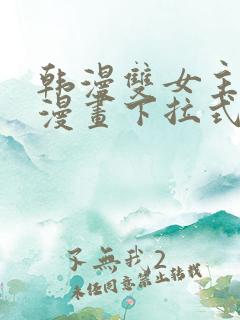 韩漫雙女主
漫畫下拉式
不無我2
未经同意禁止转载